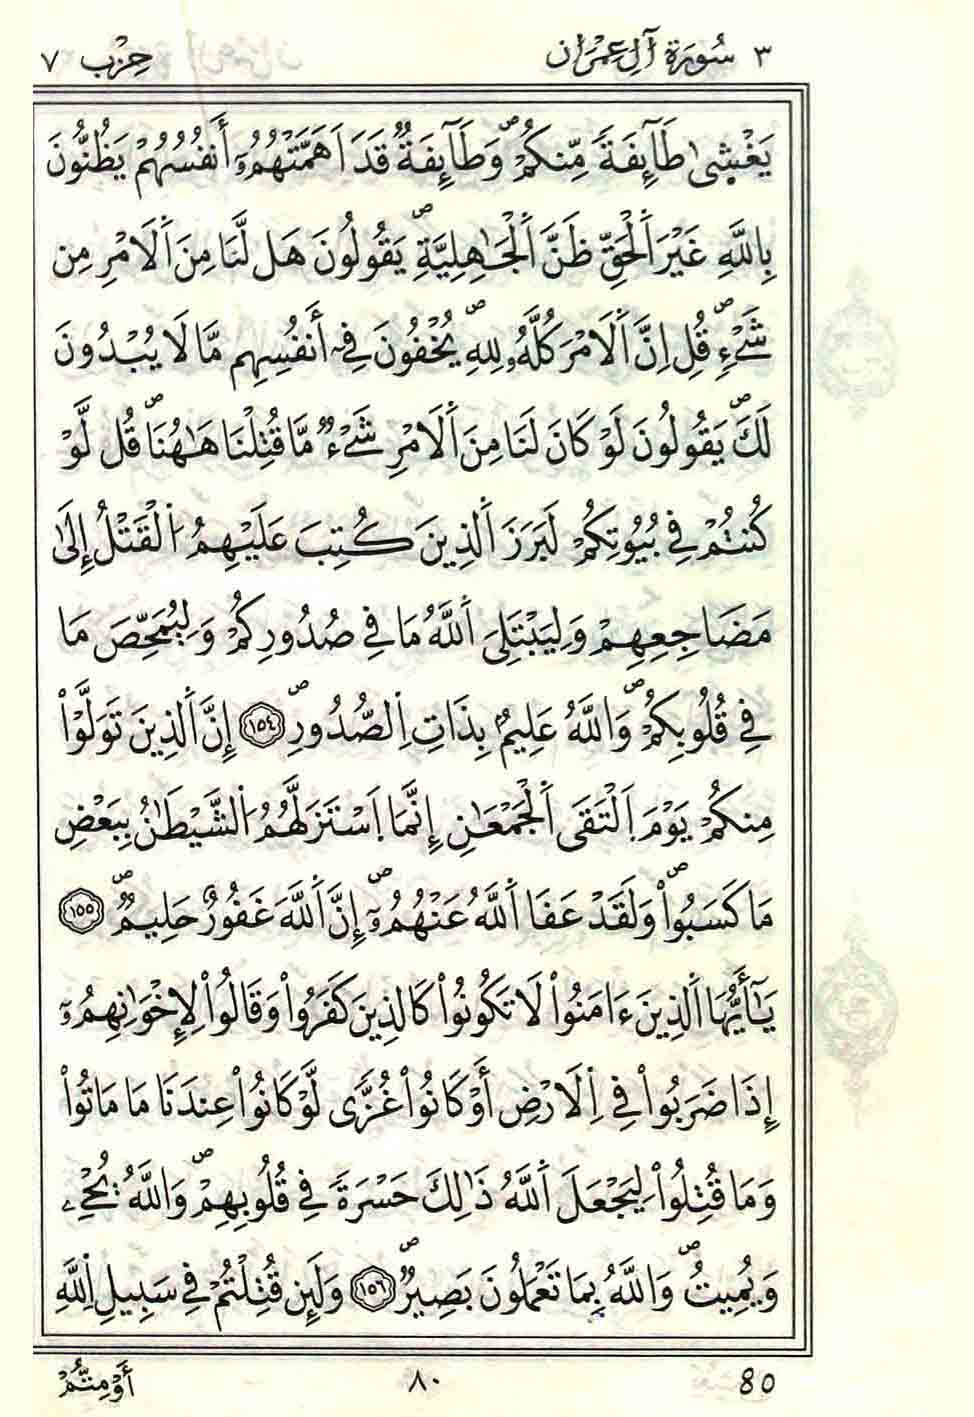 ٣ سُورَةُ آلِ عِمْرَان حِزْب ٧
يَغْشِىٰ طَآئِفَةٗ مِّنكُمْۖ وَطَآئِفَةٞ قَدَ اَهَمَّتْهُمُۥٓ أَنفُسُهُمْ يَظُنُّونَ
بِاللَّهِ غَيْرَ اَ۬لْحَقِّ ظَنَّ اَ۬لْجَٰهِلِيَّةِۖ يَقُولُونَ هَل لَّنَا مِنَ اَ۬لَامْرِ مِن
شَےْءِۖ قُلِ اِنَّ اَ۬لَامْرَ كُلَّهُۥ لِلهِۖ يُخْفُونَ فِےٓ أَنفُسِهِم مَّا لَا يُبْدُونَ
لَكَۖ يَقُولُونَ لَوْ كَانَ لَنَا مِنَ اَ۬لَامْرِ شَےْءٞ مَّا قُتِلْنَا هَٰهُنَاۖ قُل لَّوْ
كُنتُمْ فِے بُيُوتِكُمْ لَبَرَزَ اَ۬لذِينَ كُتِبَ عَلَيْهِمُ اُ۬لْقَتْلُ إِلَىٰ
مَضَاجِعِهِمْ وَلِيَبْتَلِىَ اَ۬للَّهُ مَا فِے صُدُورِكُمْ وَلِيُمَحِّصَ مَا
فِے قُلُوبِكُمْۖ وَاللَّهُ عَلِيمُۢ بِذَاتِ اِ۬لصُّدُورِۖ ١٥٤ إِنَّ اَ۬لذِينَ تَوَلَّوْاْ
مِنكُمْ يَوْمَ اَ۪لْتَقَى اَ۬لْجَمْعَٰنِ إِنَّمَا اَ۪سْتَزَلَّهُمُ اُ۬لشَّيْطَٰنُ بِبَعْضِ
مَا كَسَبُواْۖ وَلَقَدْ عَفَا اَ۬للَّهُ عَنْهُمُۥٓۖ إِنَّ اَ۬للَّهَ غَفُورٌ حَلِيمٞۖ ١٥٥
يَٰٓأَيُّهَا اَ۬لذِينَ ءَامَنُواْ لَا تَكُونُواْ كَالذِينَ كَفَرُواْ وَقَالُواْ لِإِخْوَٰنِهِمُۥٓ
إِذَا ضَرَبُواْ فِے اِ۬لَارْضِ أَوْ كَانُواْ غُزّٗى لَّوْ كَانُواْ عِندَنَا مَا مَاتُواْ
وَمَا قُتِلُواْ لِيَجْعَلَ اَ۬للَّهُ ذَٰلِكَ حَسْرَةٗ فِے قُلُوبِهِمْۖ وَاللَّهُ يُحْےِۦ
وَيُمِيتُۖ وَاللَّهُ بِمَا تَعْمَلُونَ بَصِيرٞۖ ١٥٦ وَلَئِن قُتِلْتُمْ فِے سَبِيلِ اِ۬للَّهِ
أَوْ مِتُّمْ ٨٠ 80